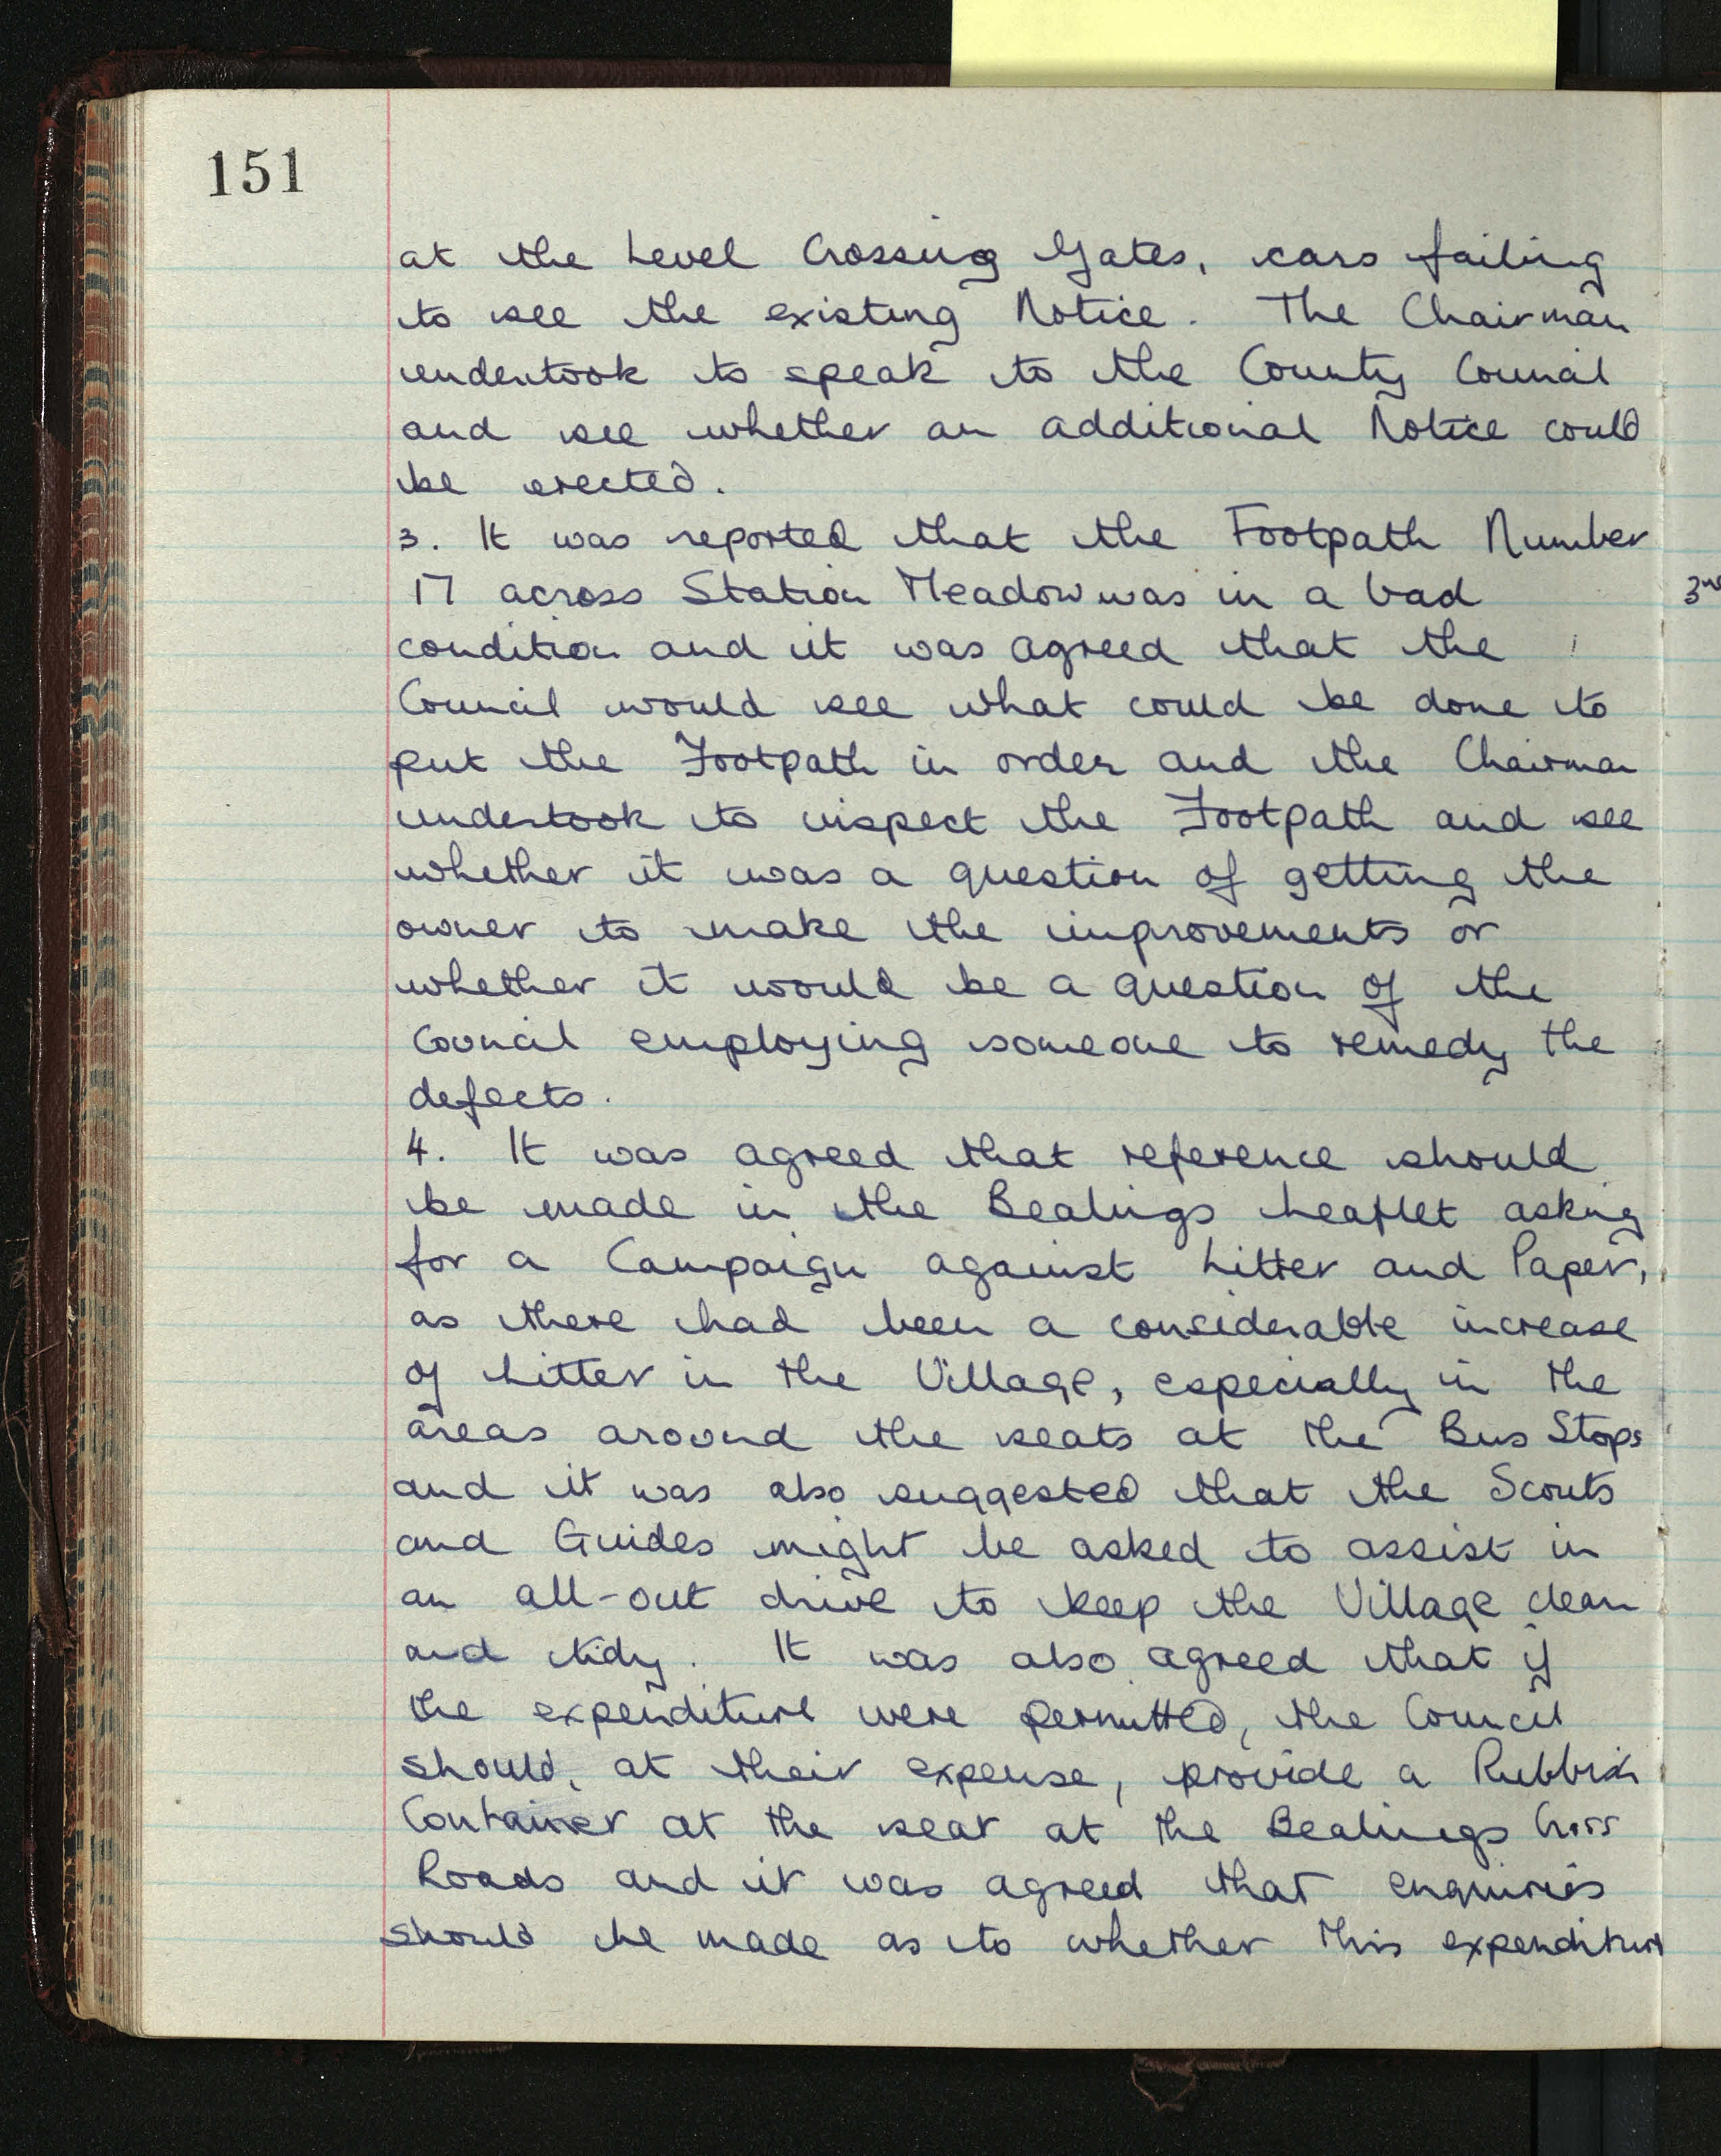 151
at the Level Crossing Gates, cars failing
to see the existing Notice. The Chairman
undertook to speak to the County Council
and see whether an additional Notice could
be erected.
3. It was reported that the Footpath Number
17 across Station Meadow was in a bad
condition and it was agreed that the
Council would see what could be done to
put the Footpath in order and the Chairman
undertook to inspect the Footpath and see
whether it was a question of getting the
owner to make the improvements or
whether it would be a question of the
Council employing someone to remedy the
defects.
4. It was agreed that reference should
be made in the Bealings Leaflet asking
for a Campaign against Litter and Paper,
as there had been a considerable increase
of Litter in the Village, especially in the
areas around the seats at the Bus Stops
and it was also suggested that the Scouts
and Guides might be asked to assist in
an all-out drive to keep the Village clean
and tidy. It was also agreed that if
the expenditure were permitted, the Council
should, at their expense, provide a Rubbish
Container at the seat at the Bealings Cross
Roads and it was agreed that enquiries
should be made as to whether this expenditure